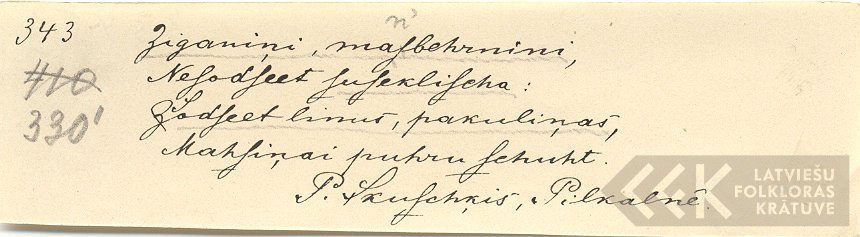 343
n'
Ziganiņi, masbehrnini,
Nesodseet suseklischa:
Zodseet linus, pakuliņas,
Mahsiņai puhru schuht.
P. Skuschķis, Pilkalnē.
410
330'
LATVIEŠU
FOLKLORAS
KRĀTUVE